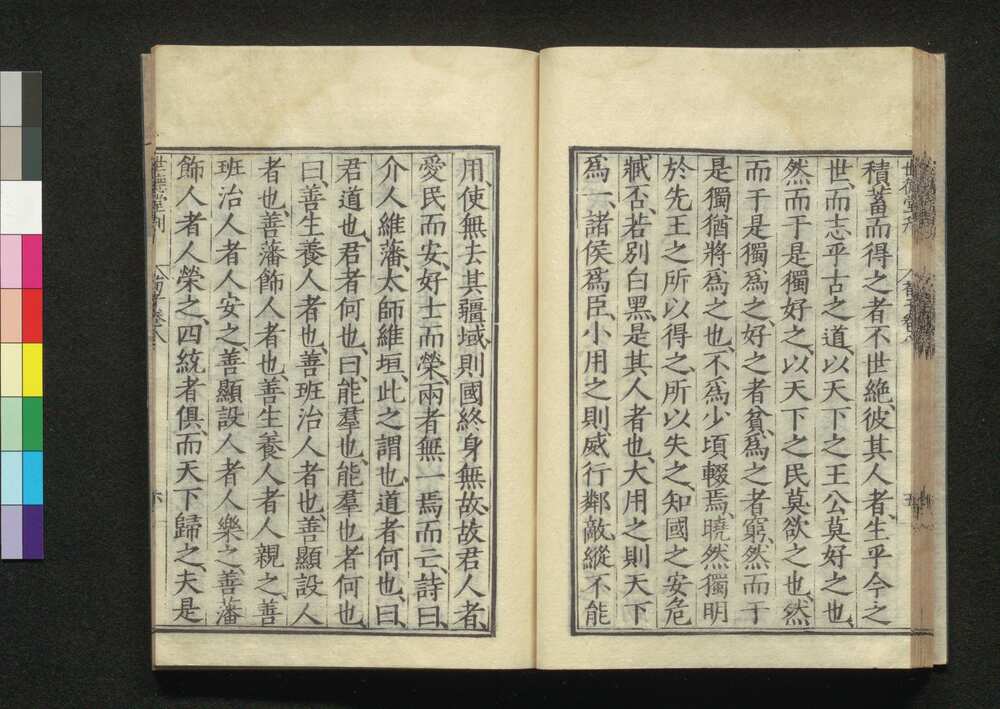 積蓄而得之者不世絶、彼其人者、生乎今之
世、而志乎古之道、以天下之王公莫好之也、
然而于是獨好之、以天下之民莫欲之也、然
而于是獨爲之、好之者貧、爲之者窮、然而于
是獨猶將爲之也、不爲少頃輟焉、曉然獨明
於先王之所以得之、所以失之、知國之安危
臧否、若別白黑、是其人者也、大用之則天下
爲一、諸侯爲臣、小用之則威行鄰敵、縱不能
用、使無去其疆域、則國終身無故、故君人者、
愛民而安、好士而榮、兩者無一焉而亡、詩曰、
介人維藩、太師維垣、此之謂也、道者何也、曰、
君道也、君者何也、曰、能羣也、能羣也者何也、
曰、善生養人者也、善班治人者也、善顯設人
者也、善藩飾人者也、善生養人者人親之、善
班治人者人安之、善顯設人者人樂之、善藩
飾人者人榮之、四統者俱、而天下歸之、夫是
世德堂刊
六